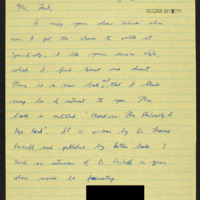 Mr. Lamb,
I enjoy your show when
ever I get the chance to watch it.
Specifically, I like your interview style,
which I find honest and direct.
There is a new book out that I think
may be of interest to you. The
book is entitled "Objectivism: The Philosophy of
Ayn Rand". It is written by Dr. Leonard
Peikoff and published by Dutton books. I
think an interview of Dr. Peikoff on your
show would be fascinating.